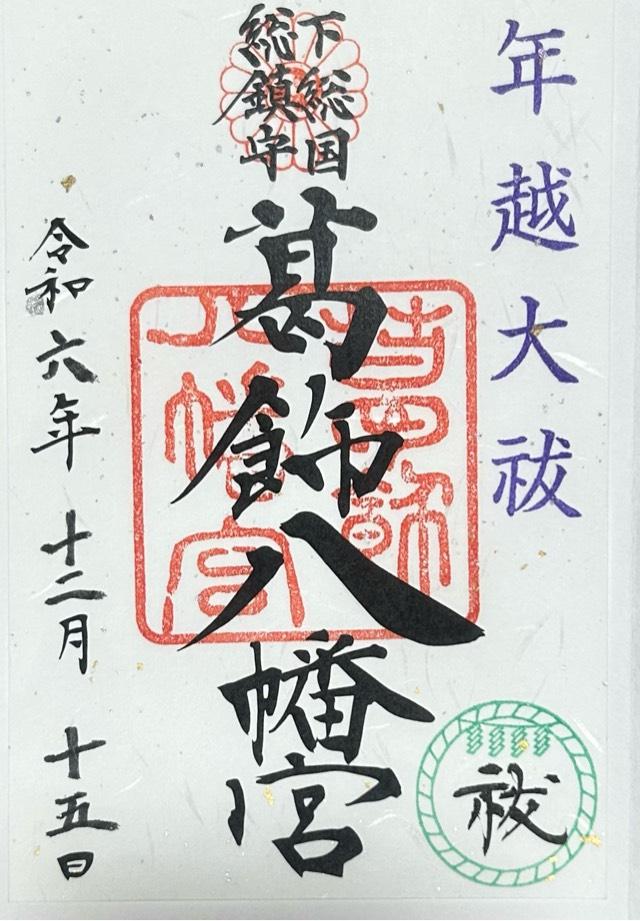 年越大祓
下総国
総鎮守
葛飾八幡宮
葛飾
八幡宮
令和六年 十二月 十五日
祓